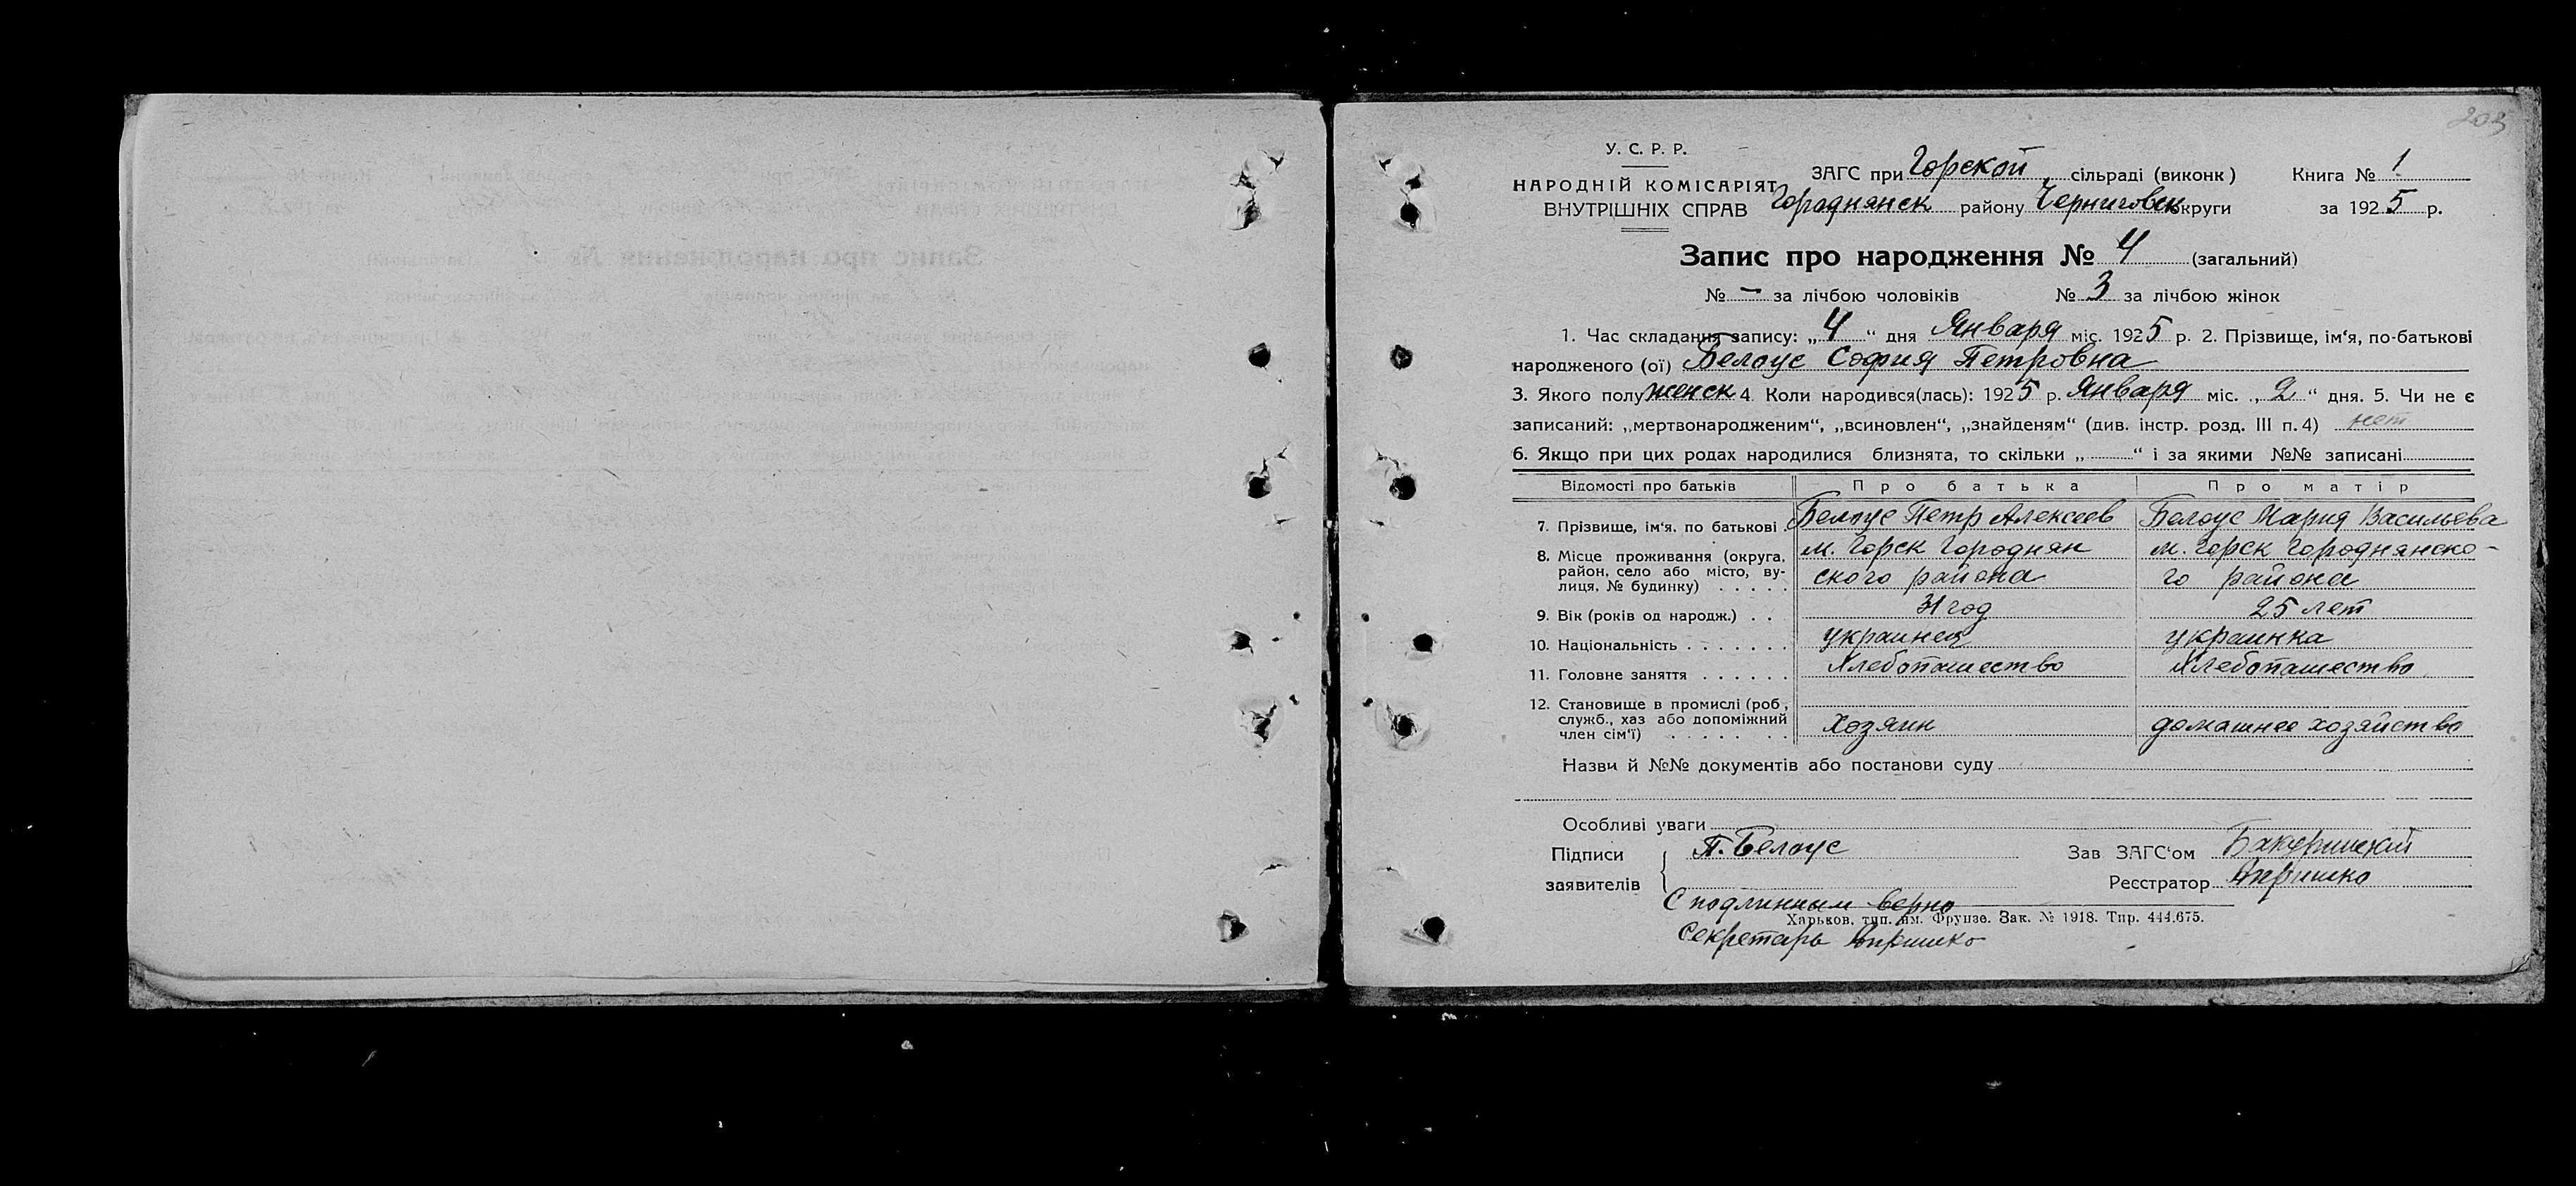 203
У. С. Р. Р.
НАРОДНІЙ КОМІСАРІЯТ
ВНУТРІШНІХ СПРАВ
ЗАГС при Горской сільраді (виконк) Книга № 1
Городнянск району Черниговск округи за 1925 р.
Запис про народження № 4 (загальний)
№ - за лічбою чоловіків № 3 за лічбою жінок
1. Час складання запису: „4“ дня Января міс. 1925 р. 2. Прізвище, ім'я, по-батькові
народженого (ої) Белоус София Петровна
3. Якого полу женск 4. Коли народився(лась): 1925 р. Января міс. „2“ дня. 5. Чи не є
записаний: „мертвонародженим“, „всиновлен“, „знайденям“ (див. інстр. розд. III п. 4) нет
6. Якщо при цих родах народилися близнята, то скільки „ “ і за якими №№ записані
Відомості про батьків Про батька Про матір
7. Прізвище, ім'я, по батькові Белоус Петр Алексеев Белоус Мария Васильева
8. Місце проживання (округа, м. Горск Городнян м. Горск Городнянско-
район, село або місто, ву- ского района го района
лиця, № будинку)
9. Вік (років од народж.) 31 год 25 лет
10. Національність украинец украинка
11. Головне заняття Хлебопашество Хлебопашество
12. Становище в промислі (роб,
служб., хаз або допоміжний
член сім'ї) Хозяин домашнее хозяйство
Назви й №№ документів або постанови суду
Особливі уваги
Підписи П. Белоус Зав ЗАГС'ом
заявителів Реєстратор
С подлинным верно
Харьков, тип. им. Фрунзе. Зак. № 1918. Тир. 444.675.
Секретарь